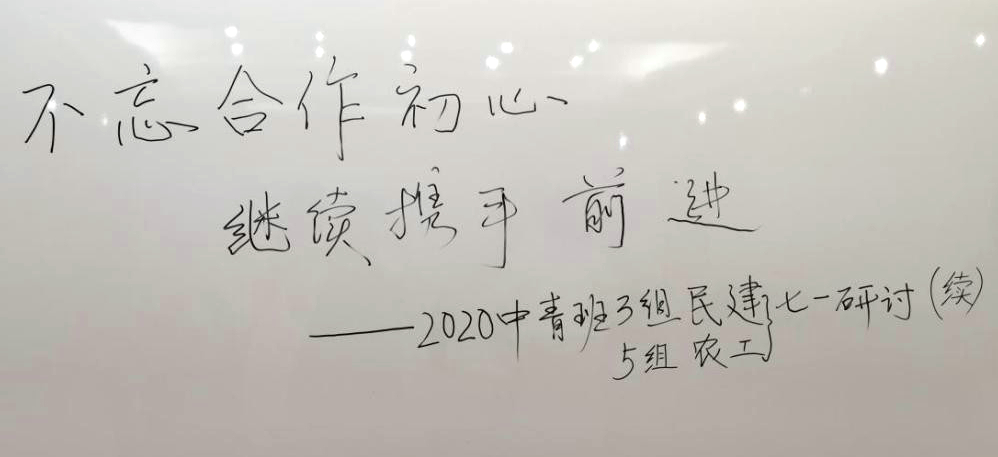 不忘合作初心
继续携手前进
——2020中青班3组民建}七一研讨(续)
5组农工